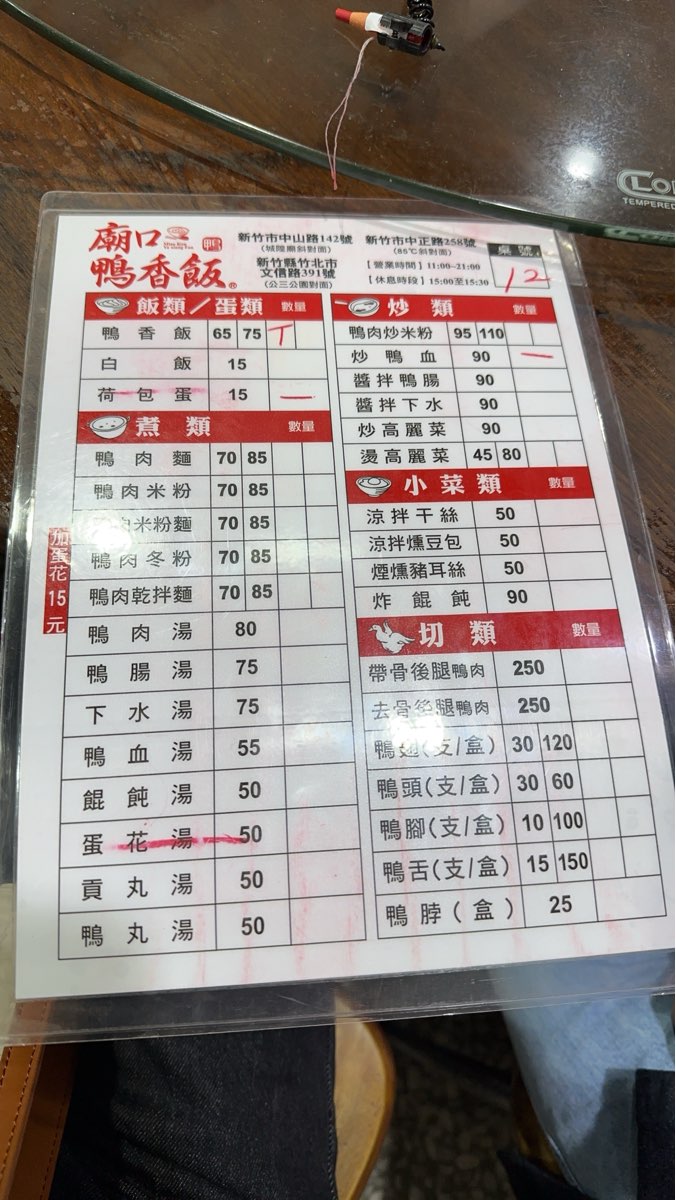 廟口
鴨香飯®
鴨
新竹市中山路142號
(城隍廟斜對面)
新竹縣竹北市
文信路391號
(公三公園對面)
新竹市中正路258號
(85℃斜對面)
[營業時間] 11:00~21:00
[休息時段] 15:00至15:30
桌號
12
飯類/蛋類 數量
鴨香飯 65 75 T
白飯 15
荷包蛋 15 一
煮類 數量
鴨肉麵 70 85
鴨肉米粉 70 85
米粉麵 70 85
鴨肉冬粉 70 85
鴨肉乾拌麵 70 85
鴨肉湯 80
鴨腸湯 75
下水湯 75
鴨血湯 55
餛飩湯 50
蛋花湯 50
貢丸湯 50
鴨丸湯 50
加蛋花15元
炒類 數量
鴨肉炒米粉 95 110
炒鴨血 90 一
醬拌鴨腸 90
醬拌下水 90
炒高麗菜 90
燙高麗菜 45 80
小菜類 數量
涼拌干絲 50
涼拌燻豆包 50
煙燻豬耳絲 50
炸餛飩 90
切類 數量
帶骨後腿鴨肉 250
去骨後腿鴨肉 250
鴨翅(支/盒) 30 120
鴨頭(支/盒) 30 60
鴨腳(支/盒) 10 100
鴨舌(支/盒) 15 150
鴨脖(盒) 25